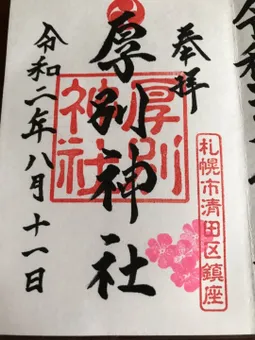 奉拝
厚別神社
厚別
神社
札幌市清田区鎮座
令和二年八月十一日